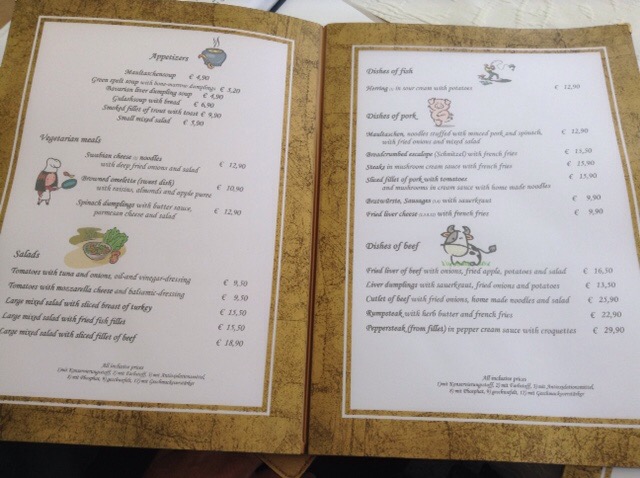 Appetizers
Maultaschensoup € 4,90
Green spelt soup with bone-marrow dumplings € 5,20
Bavarian liver dumpling soup € 4,90
Gulaschsoup with bread € 6,90
Smoked fillet of trout with toast € 9,50
Small mixed salad € 5,50
Vegetarian meals
Swabian cheese noodles
with deep fried onions and salad € 12,90
Browned omelette (sweet dish)
with raisins, almonds and apple puree € 10,90
Spinach dumplings with butter sauce,
parmesan cheese and salad € 12,90
Salads
Tomatoes with tuna and onions, oil-and vinegar-dressing € 9,50
Tomatoes with mozzarella cheese and balsamic-dressing € 9,50
Large mixed salad with sliced breast of turkey € 15,50
Large mixed salad with fried fish fillet € 15,50
Large mixed salad with sliced fillet of beef € 18,90
All inclusive prices
1) mit Konservierungsstoff, 2) mit Farbstoff, 3) mit Antioxidationsmittel,
8) mit Phosphat, 9) geschwefelt, 11) mit Geschmacksverstärker
Dishes of fish
Herring in sour cream with potatoes € 12,90
Dishes of pork
Maultaschen, noodles stuffed with minced pork and spinach, € 12,90
with fried onions and mixed salad
Breadcrumbed escalope (Schnitzel) with french fries € 13,50
Steaks in mushroom cream sauce with french fries € 15,90
Sliced fillet of pork with tomatoes € 15,90
and mushrooms in cream sauce with home made noodles
Bratwürste, Sausages with sauerkraut € 9,90
Fried liver cheese with french fries € 9,90
Dishes of beef
Fried liver of beef with onions, fried apple, potatoes and salad € 16,50
Liver dumplings with sauerkraut, fried onions and potatoes € 13,50
Cutlet of beef with fried onions, home made noodles and salad € 23,90
Rumpsteak with herb butter and french fries € 22,90
Peppersteak (from fillet) in pepper cream sauce with croquettes € 29,90
All inclusive prices
1) mit Konservierungsstoff, 2) mit Farbstoff, 3) mit Antioxidationsmittel,
8) mit Phosphat, 9) geschwefelt, 11) mit Geschmacksverstärker